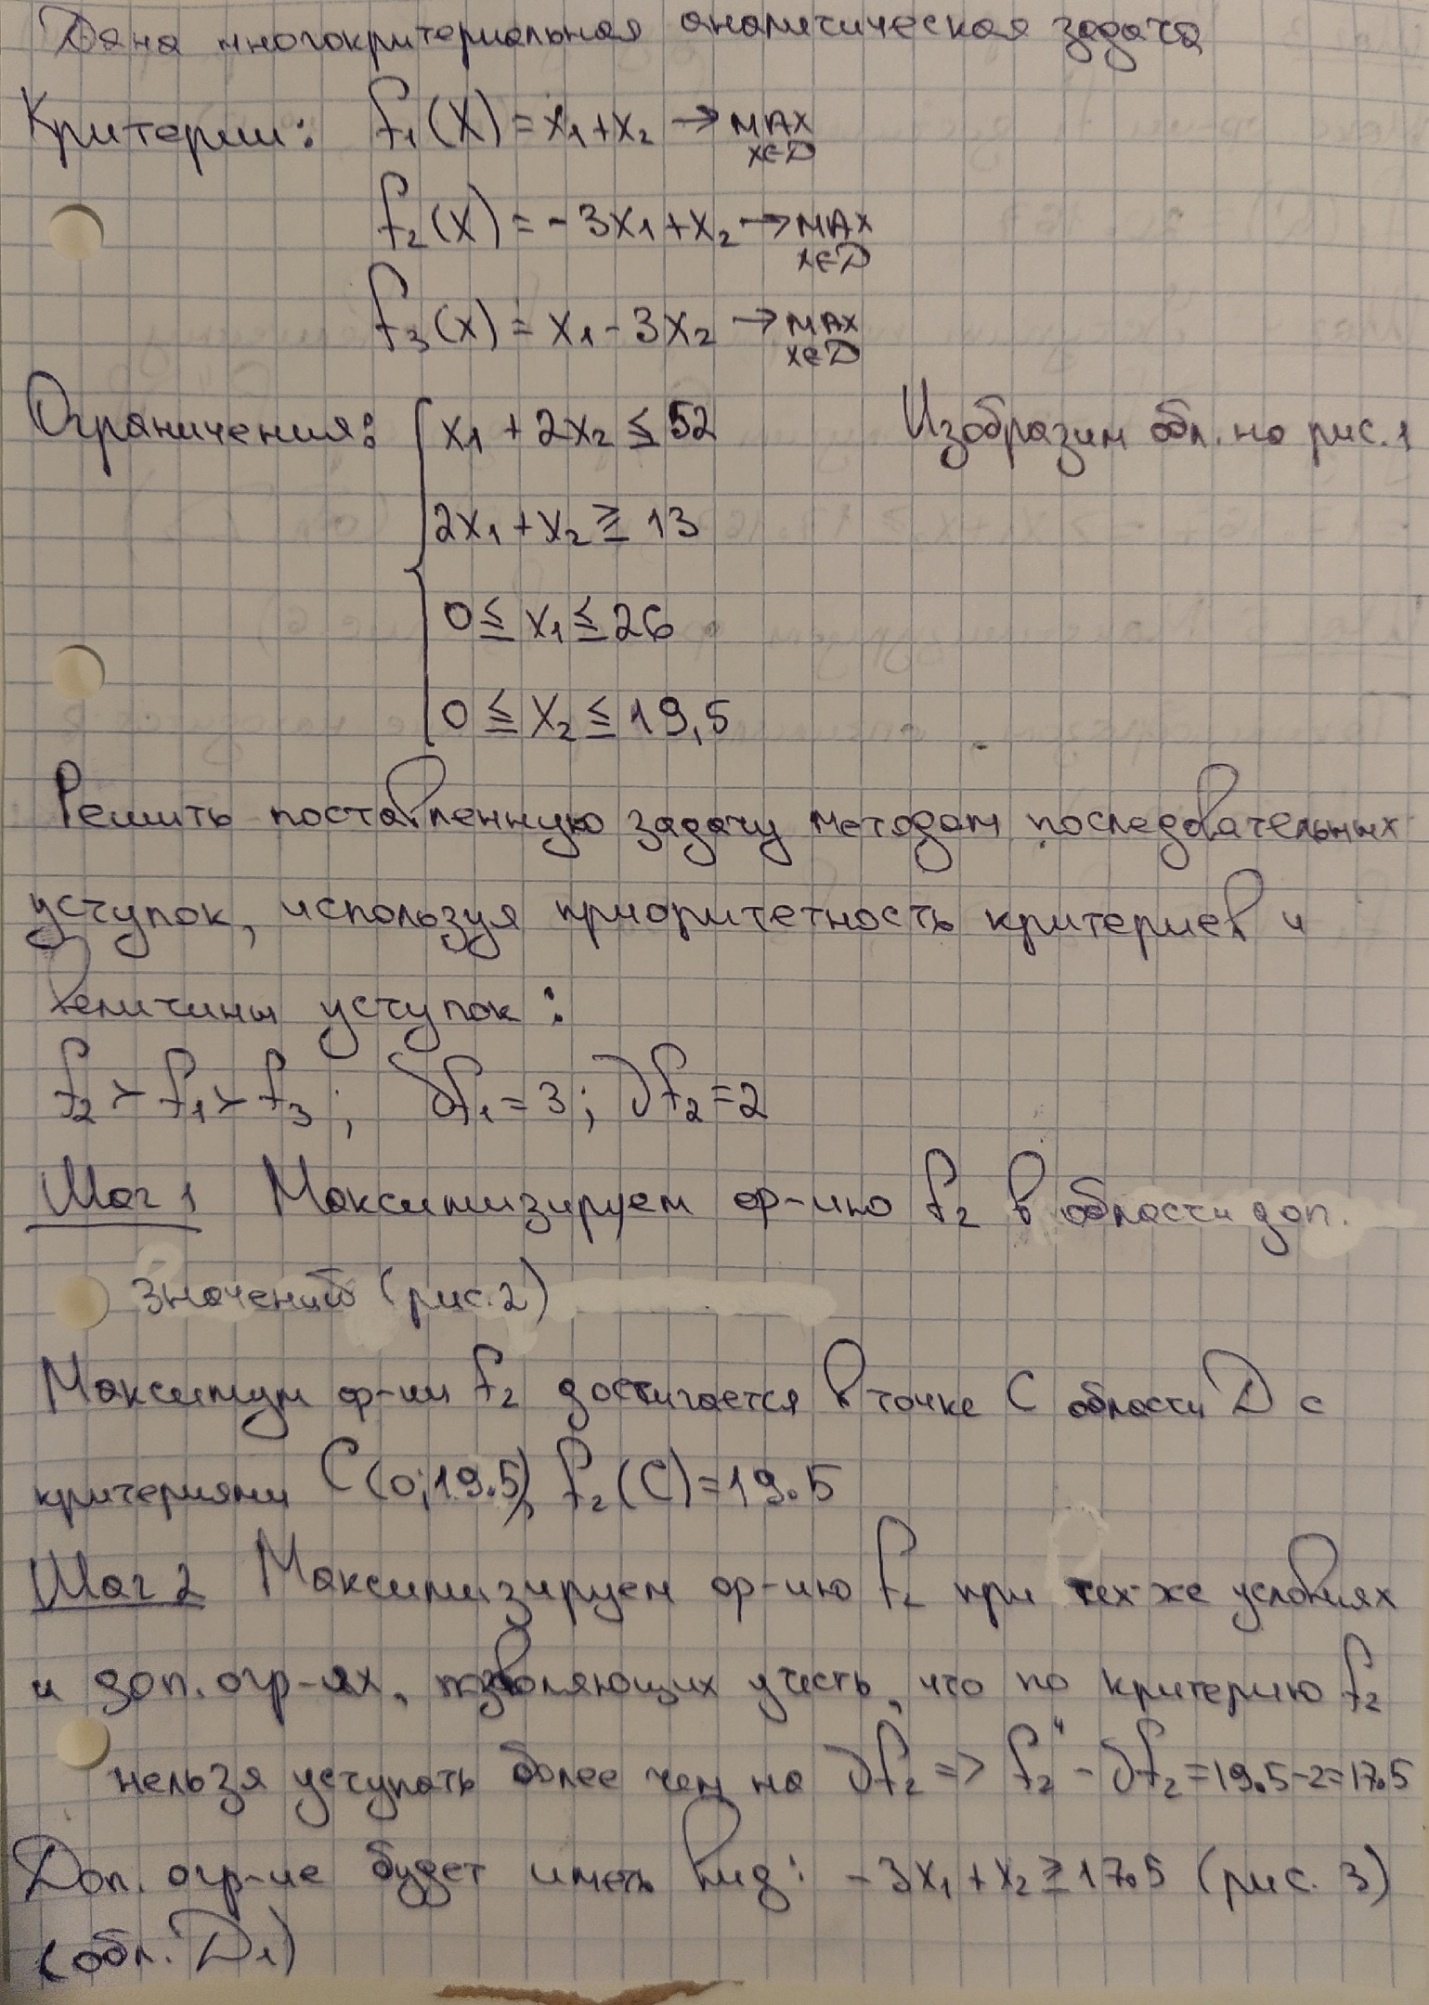 Дана многокритериальная аналитическая задача
Критерии: f₁(X) = x₁+x₂ → MAX x∈D
f₂(X) = -3x₁+x₂ → MAX x∈D
f₃(x) = x₁-3x₂ → MAX x∈D
Ограничения: { x₁ + 2x₂ ≤ 52 Изобразим обл. на рис. 1
2x₁ + x₂ ≥ 13
0 ≤ x₁ ≤ 26
0 ≤ x₂ ≤ 19,5
Решить поставленную задачу методом последовательных
уступок, используя приоритетность критериев и
величины уступок:
f₂ > f₁ > f₃ ; ∂f₁ = 3; ∂f₂ = 2
Шаг 1 Максимизируем ф-ию f₂ в области доп.
значений (рис. 2)
Максимум ф-ии f₂ достигается в точке C области D с
критериями C(0;19.5), f₂(C)=19.5
Шаг 2 Максимизируем ф-ию f₂ при тех-же условиях
и доп. огр-ях, позволяющих учесть, что по критерию f₂
нельзя уступать более чем на ∂f₂ => f₂ - ∂f₂ = 19.5-2=17.5
Доп. огр-ие будет иметь вид: -3x₁+x₂ ≥ 17.5 (рис. 3)
(обл. D₁)